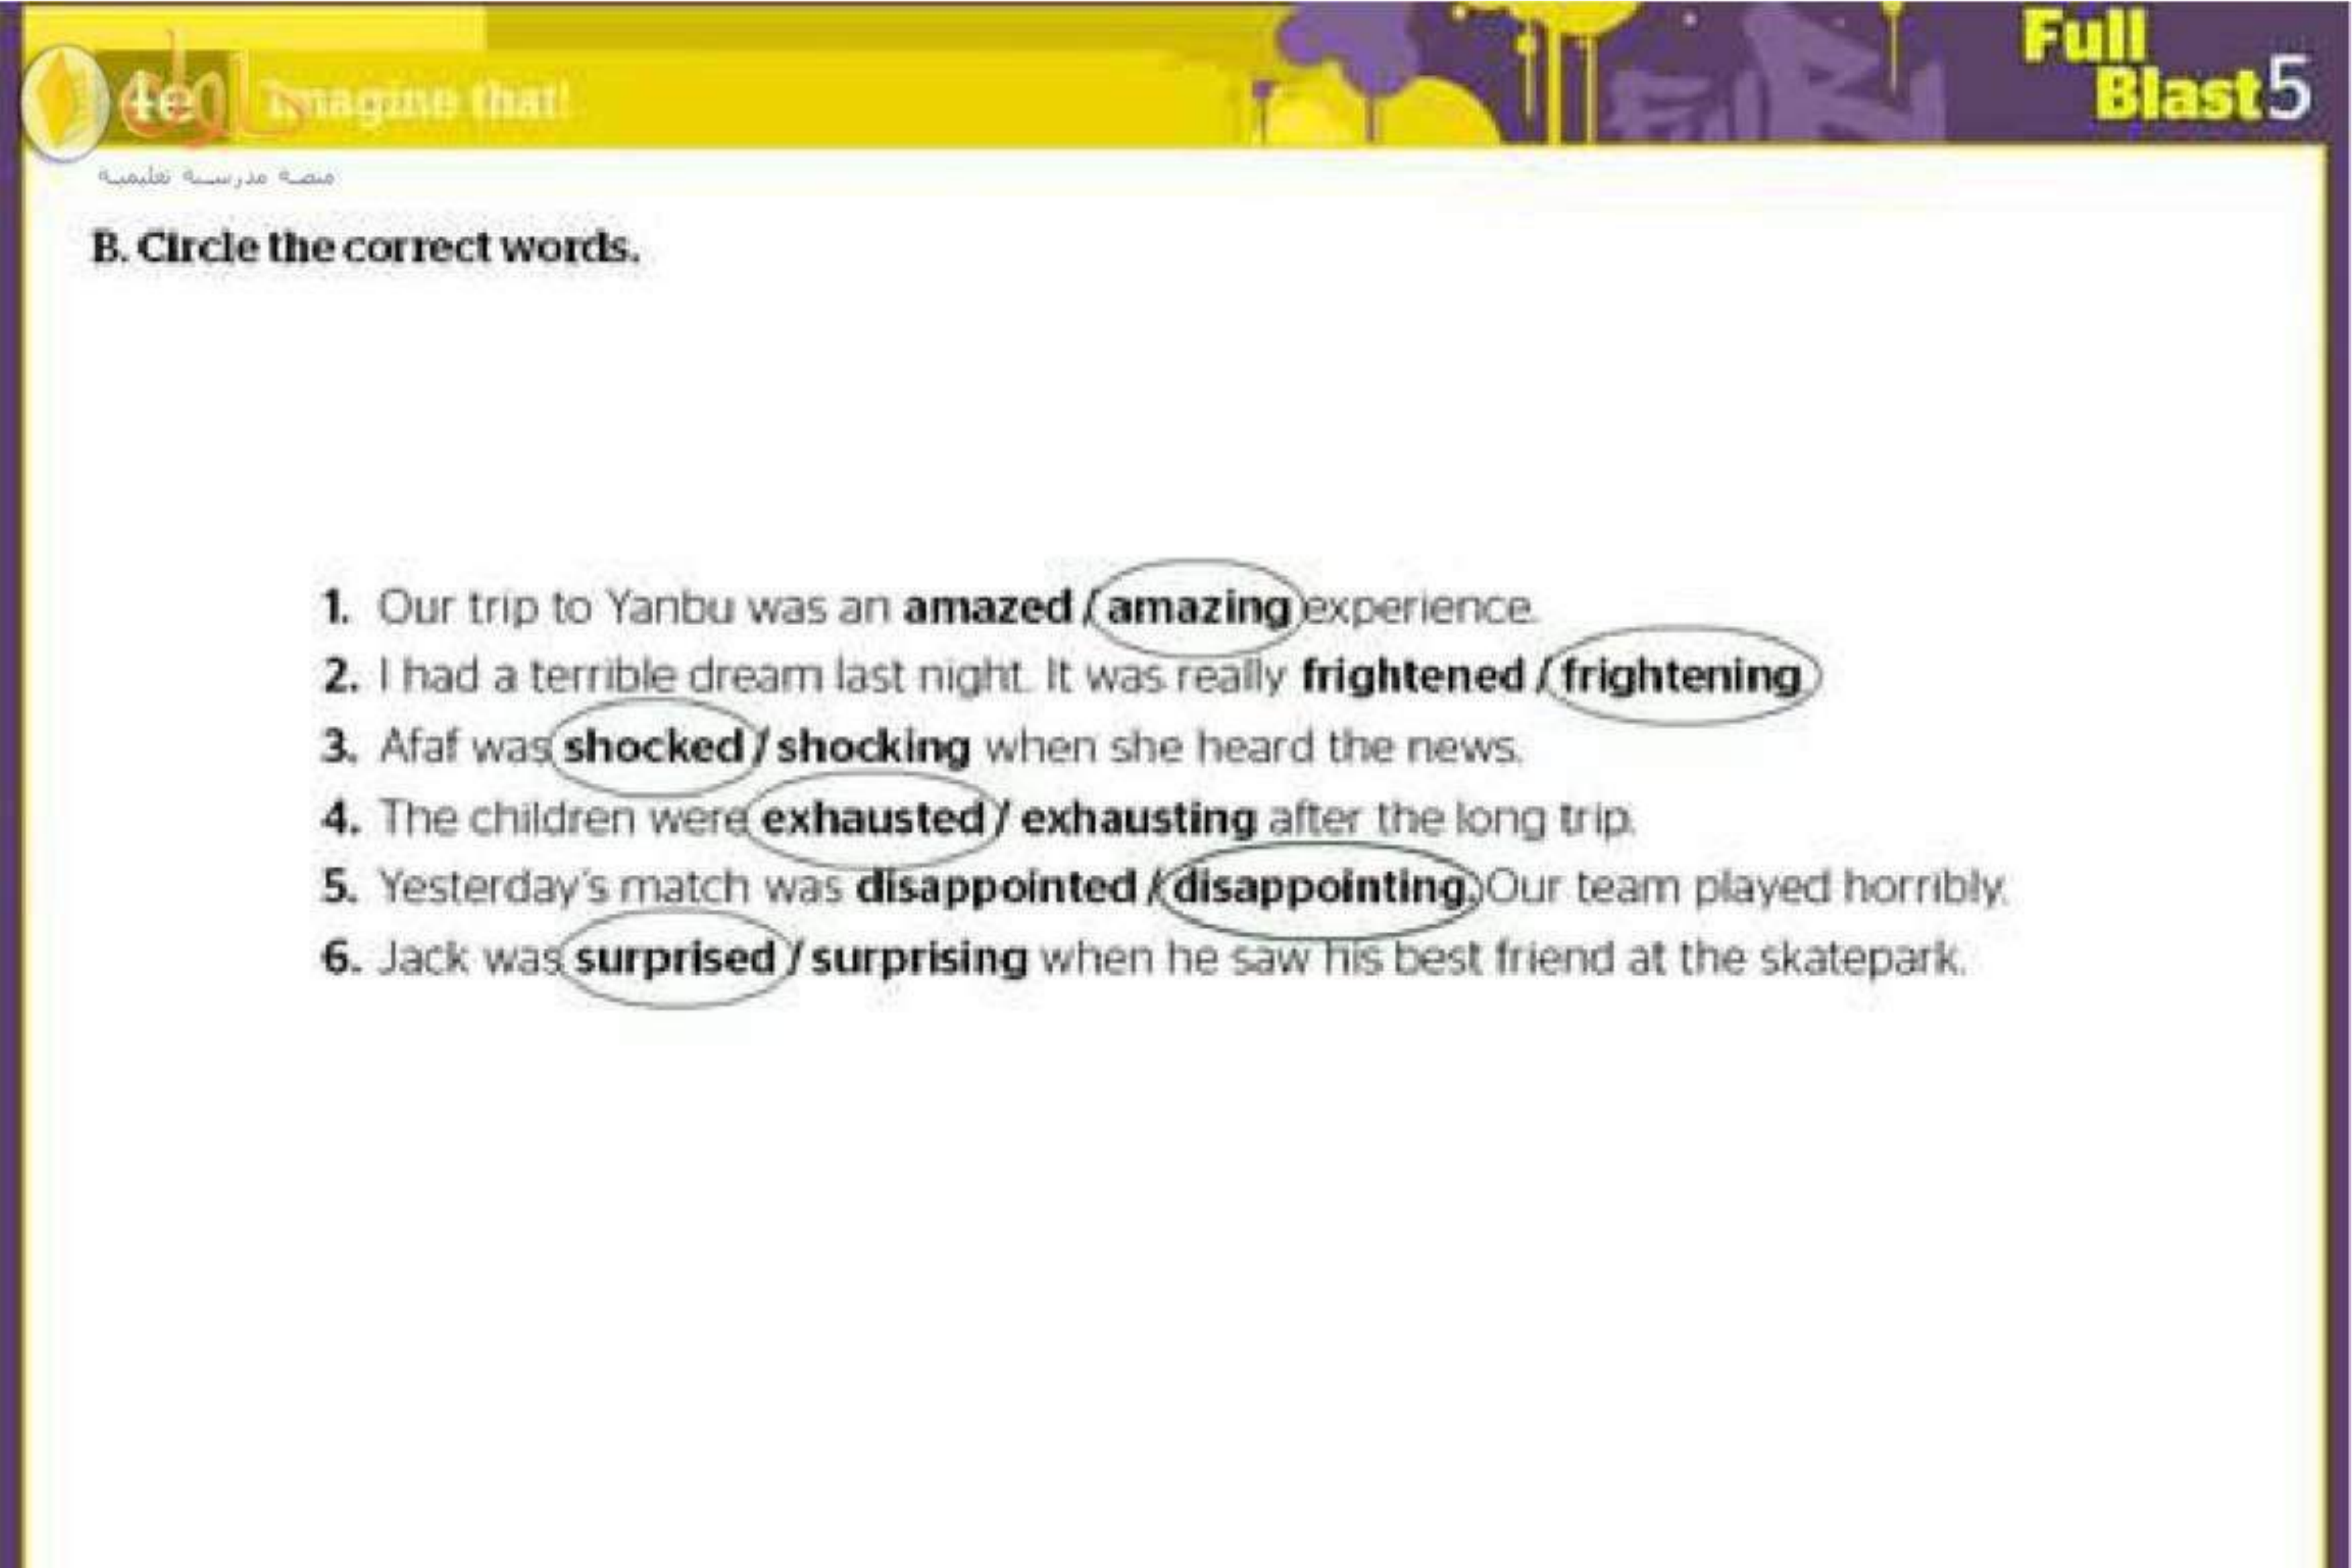 Full
Blast5
4e Imagine that!
منصة مدرسية تعليمية
B. Circle the correct words.
1. Our trip to Yanbu was an amazed / amazing experience.
2. I had a terrible dream last night. It was really frightened / frightening
3. Afaf was shocked / shocking when she heard the news.
4. The children were exhausted / exhausting after the long trip.
5. Yesterday's match was disappointed / disappointing. Our team played horribly.
6. Jack was surprised / surprising when he saw his best friend at the skatepark.